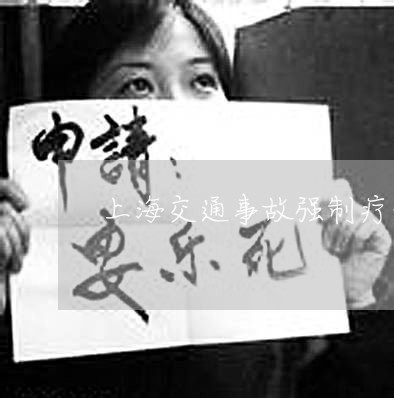 申請：
上海交通事故强制疗
要乐死